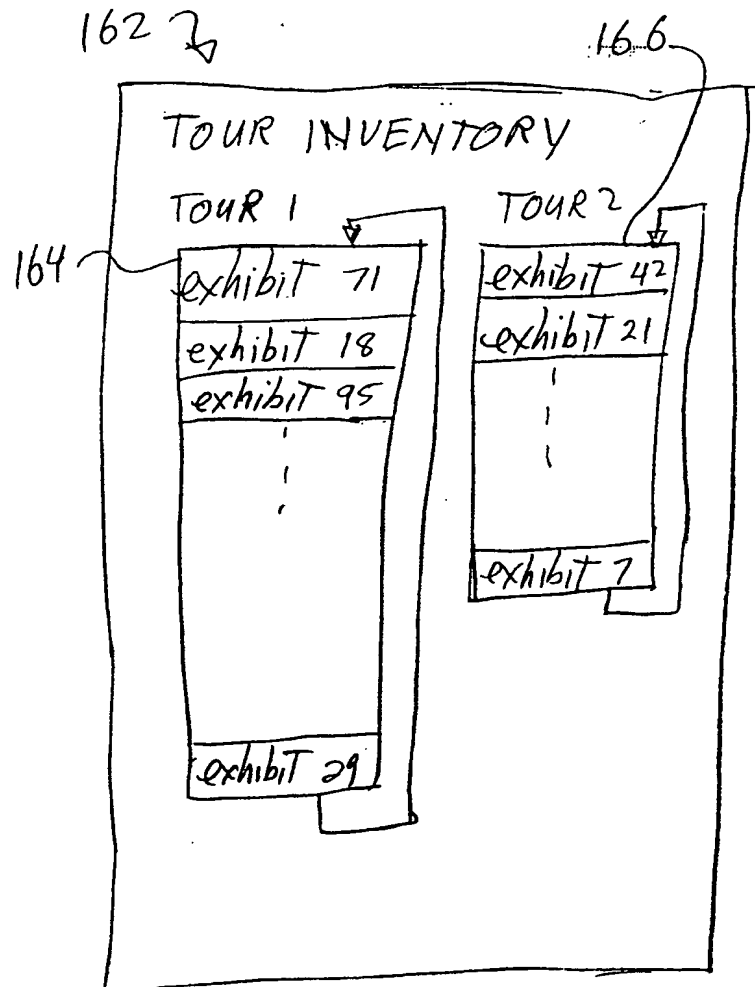 162
166
TOUR INVENTORY
TOUR 1
TOUR 2
164
exhibit 71
exhibit 18
exhibit 95
exhibit 29
exhibit 42
exhibit 21
exhibit 7